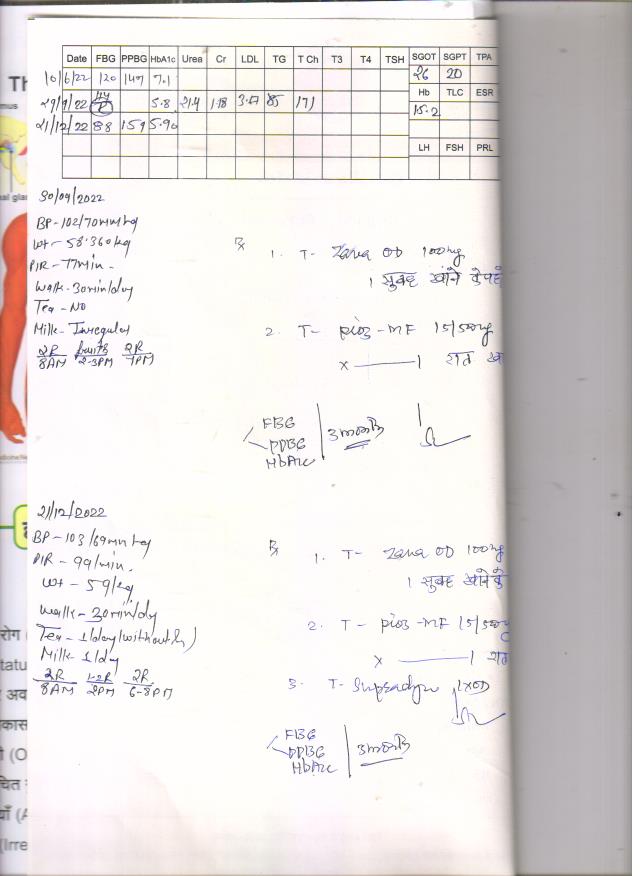 Date FBG PPBG HbA1c Urea Cr LDL TG T Ch T3 T4 TSH SGOT SGPT TPA
10/6/22 120 147 7.1 26 20
Hb TLC ESR
29/9/22 5.8 21.4 1.18 85 171 15.2
21/12/22 88 159 5.90
LH FSH PRL
30/09/2022
BP-102/70mmHg
Wt-58.360kg
P/R-77min.
Walk-30min/day
Tea-No
Milk-Irregular
2R fruits 2R
8AM 2-3PM 7PM
Rx
1. T- OD 100mg
1 सुबह खाने के
2. T- pioz-MF 15/500mg
x 1 रात
FBG
PPBG
HbA1c
3 months
21/12/2022
BP-103/69mmHg
P/R-99/min.
Wt-59/kg
Walk-30min/day
Tea-1/day(without)
Milk-1/day
2R 1-2R 2R
8AM 2PM 6-8PM
Rx
1. T- OD 100mg
1 सुबह खाने के
2. T- pioz-MF 15/500mg
x 1
3. T- Supradyn 1xOD
FBG
PPBG
HbA1c
3 months
रोग
अव
कास
(O
चित
याँ (A
(Irre